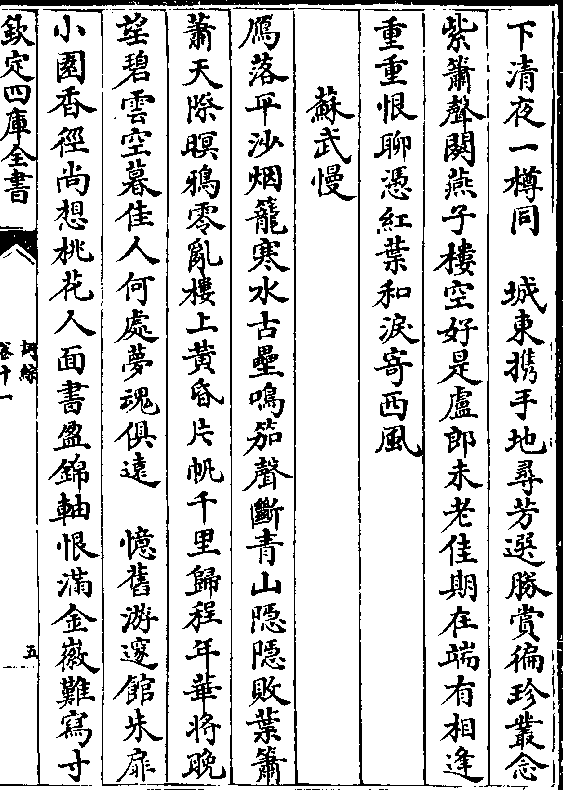 下清夜一樽同　城東携手地尋芳選勝賞徧珍叢念
紫簫聲闋燕子樓空好是盧郎未老佳期在端有相逢
重重恨聊憑紅葉和淚寄西風
蘇武慢
鴈落平沙烟籠寒水古壘鳴笳聲斷青山隠隠敗葉蕭
蕭天際暝鴉零亂樓上黄昏片帆千里歸程年華將晚
望碧雲空暮佳人何處夢魂俱遠　憶舊游邃館朱扉
小園香徑尚想桃花人面書盈錦軸恨滿金徽難寫寸
欽定四庫全書
詞綜
卷十一
五